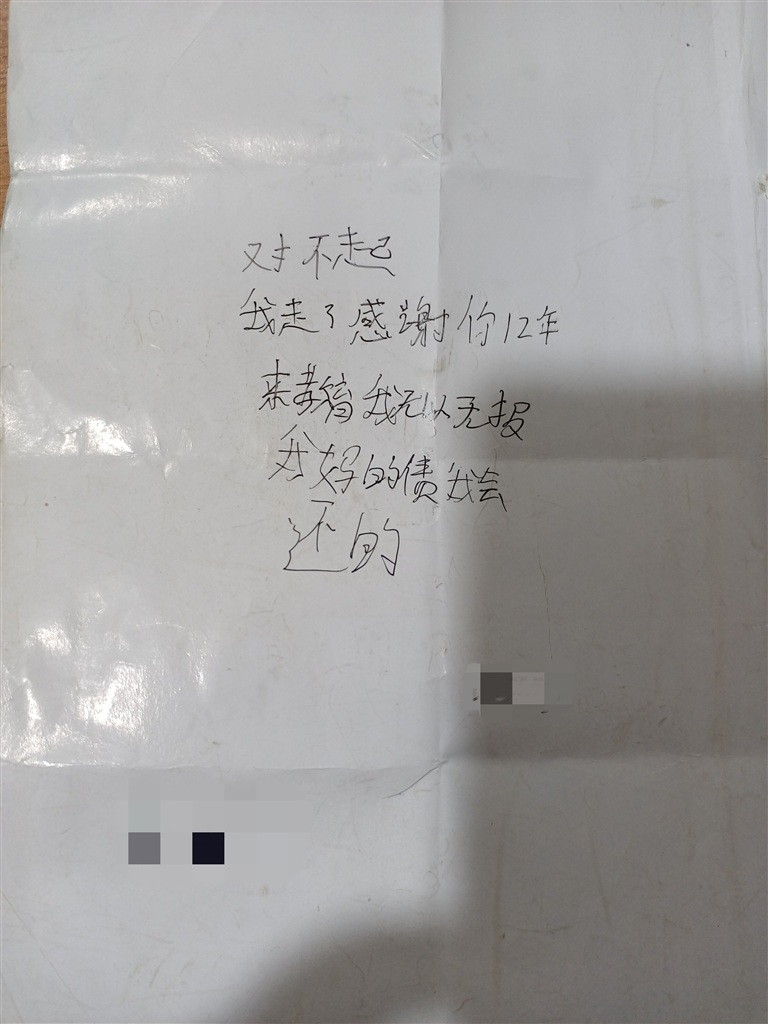 对不起
我走了感谢你12年
来教育我无以无报
我妈的债我会
还的